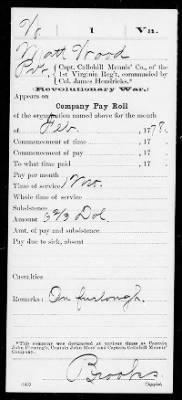 W | 1 | Va.
Matt Wood
Pvt, Capt. Callohill Mennis' Co., of the
1st Virginia Reg't, commanded by
Col. James Hendricks.*
(Revolutionary War.)
Appears on
Company Pay Roll
of the organization named above for the month
of Feb., 1778.
Commencement of time , 17
Commencement of pay , 17
To what time paid , 17
Pay per month
Time of service 1 Mo.
Whole time of service
Subsistence
Amount 6 2/3 Dol.
Amt. of pay and subsistence
Pay due to sick, absent
Casualties
Remarks: On furlough.
*This company was designated at various times as Captain
Company.
Brooks
Copyist.